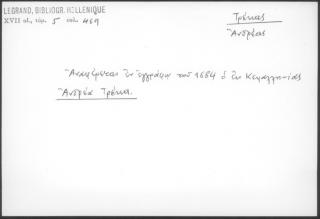 LEGRAND, BIBLIOGR. HELLENIQUE
XVII αἰ., τόμ. 5 σελ. 469
Τρέκας
Ἀνδρέας
Ἀναφέρεται ἐν ἐγγράφῳ τοῦ 1684 ὁ ἐκ Κεφαλληνίας
Ἀνδρέα Τρέκα.